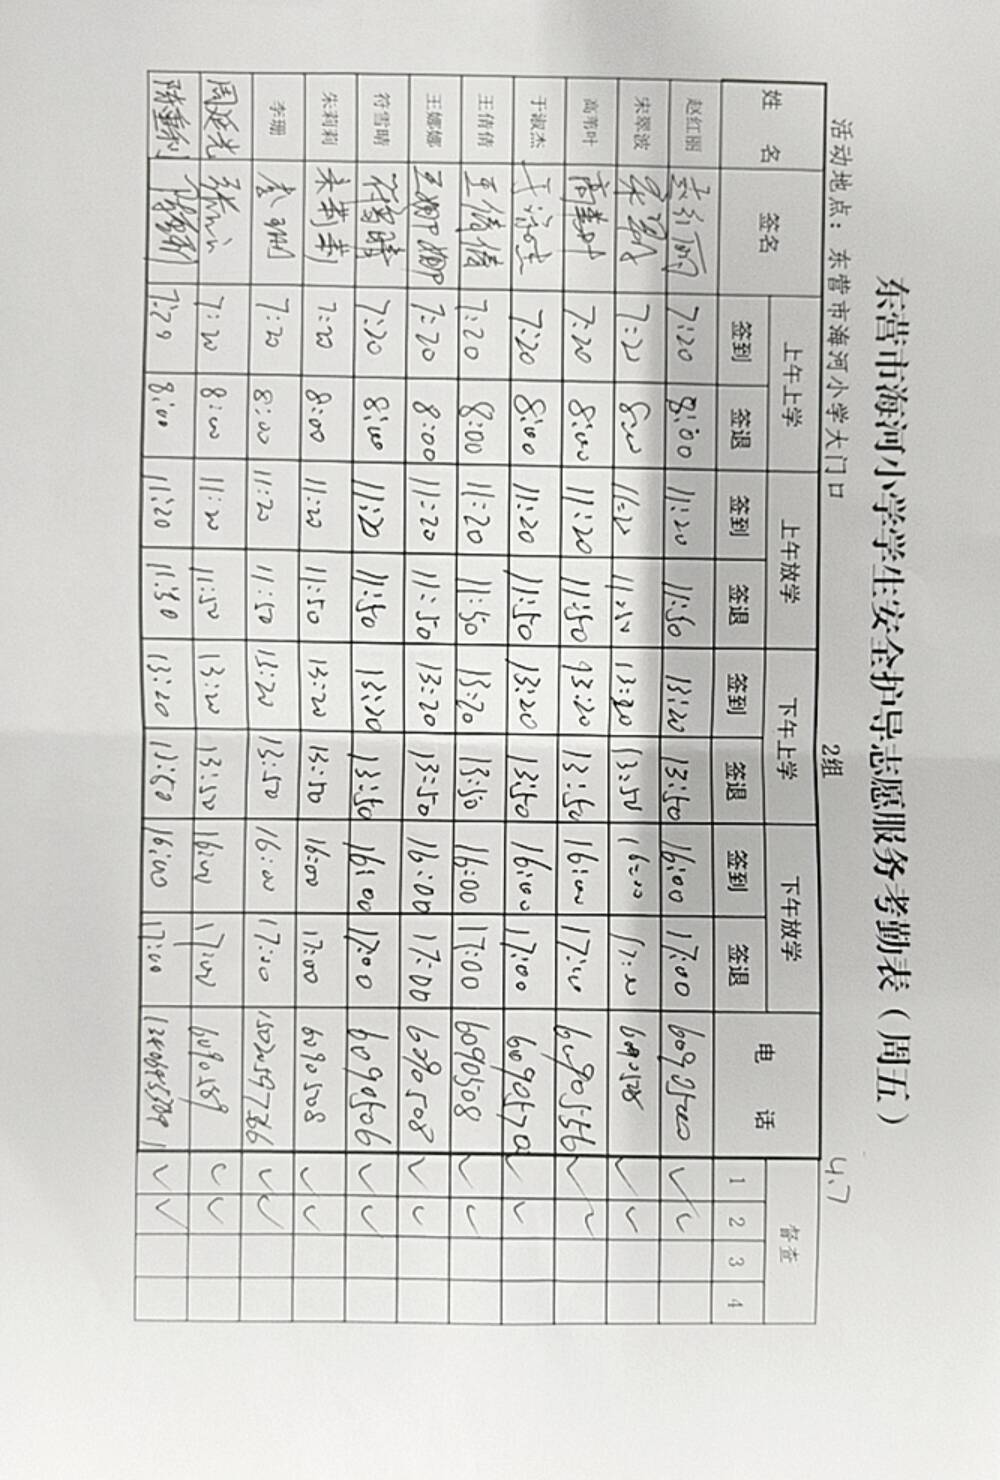 东营市海河小学学生安全护导志愿服务考勤表（周五）
活动地点：东营市海河小学大门口 2组 4.7
姓名 签名 上午上学 上午放学 下午上学 下午放学 电话 督查
签到 签退 签到 签退 签到 签退 签到 签退 1 2 3 4
赵红丽 赵红丽 7:20 8:00 11:20 11:50 13:20 13:50 16:00 17:00 6090500 ✓ ✓
宋翠波 7:20 8:00 11:20 11:50 13:20 13:50 16:00 17:00 6090528 ✓ ✓
高苇叶 高苇叶 7:20 8:00 11:20 11:50 13:20 13:50 16:00 17:00 6090556 ✓ ✓
于淑杰 于淑杰 7:20 8:00 11:20 11:50 13:20 13:50 16:00 17:00 6090570 ✓ ✓
王倩倩 王倩倩 7:20 8:00 11:20 11:50 13:20 13:50 16:00 17:00 6090508 ✓ ✓
王娜娜 王娜娜 7:20 8:00 11:20 11:50 13:20 13:50 16:00 17:00 6090508 ✓ ✓
符雪晴 符雪晴 7:20 8:00 11:20 11:50 13:20 13:50 16:00 17:00 6090506 ✓ ✓
朱莉莉 朱莉莉 7:20 8:00 11:20 11:50 13:20 13:50 16:00 17:00 6090508 ✓ ✓
李珊 李珊 7:20 8:00 11:20 11:50 13:20 13:50 16:00 17:00 ✓ ✓
周延光 7:20 8:00 11:20 11:50 13:20 13:50 16:00 17:00 6090589 ✓ ✓
7:29 8:00 11:20 11:50 13:20 13:50 16:00 17:00 ✓ ✓